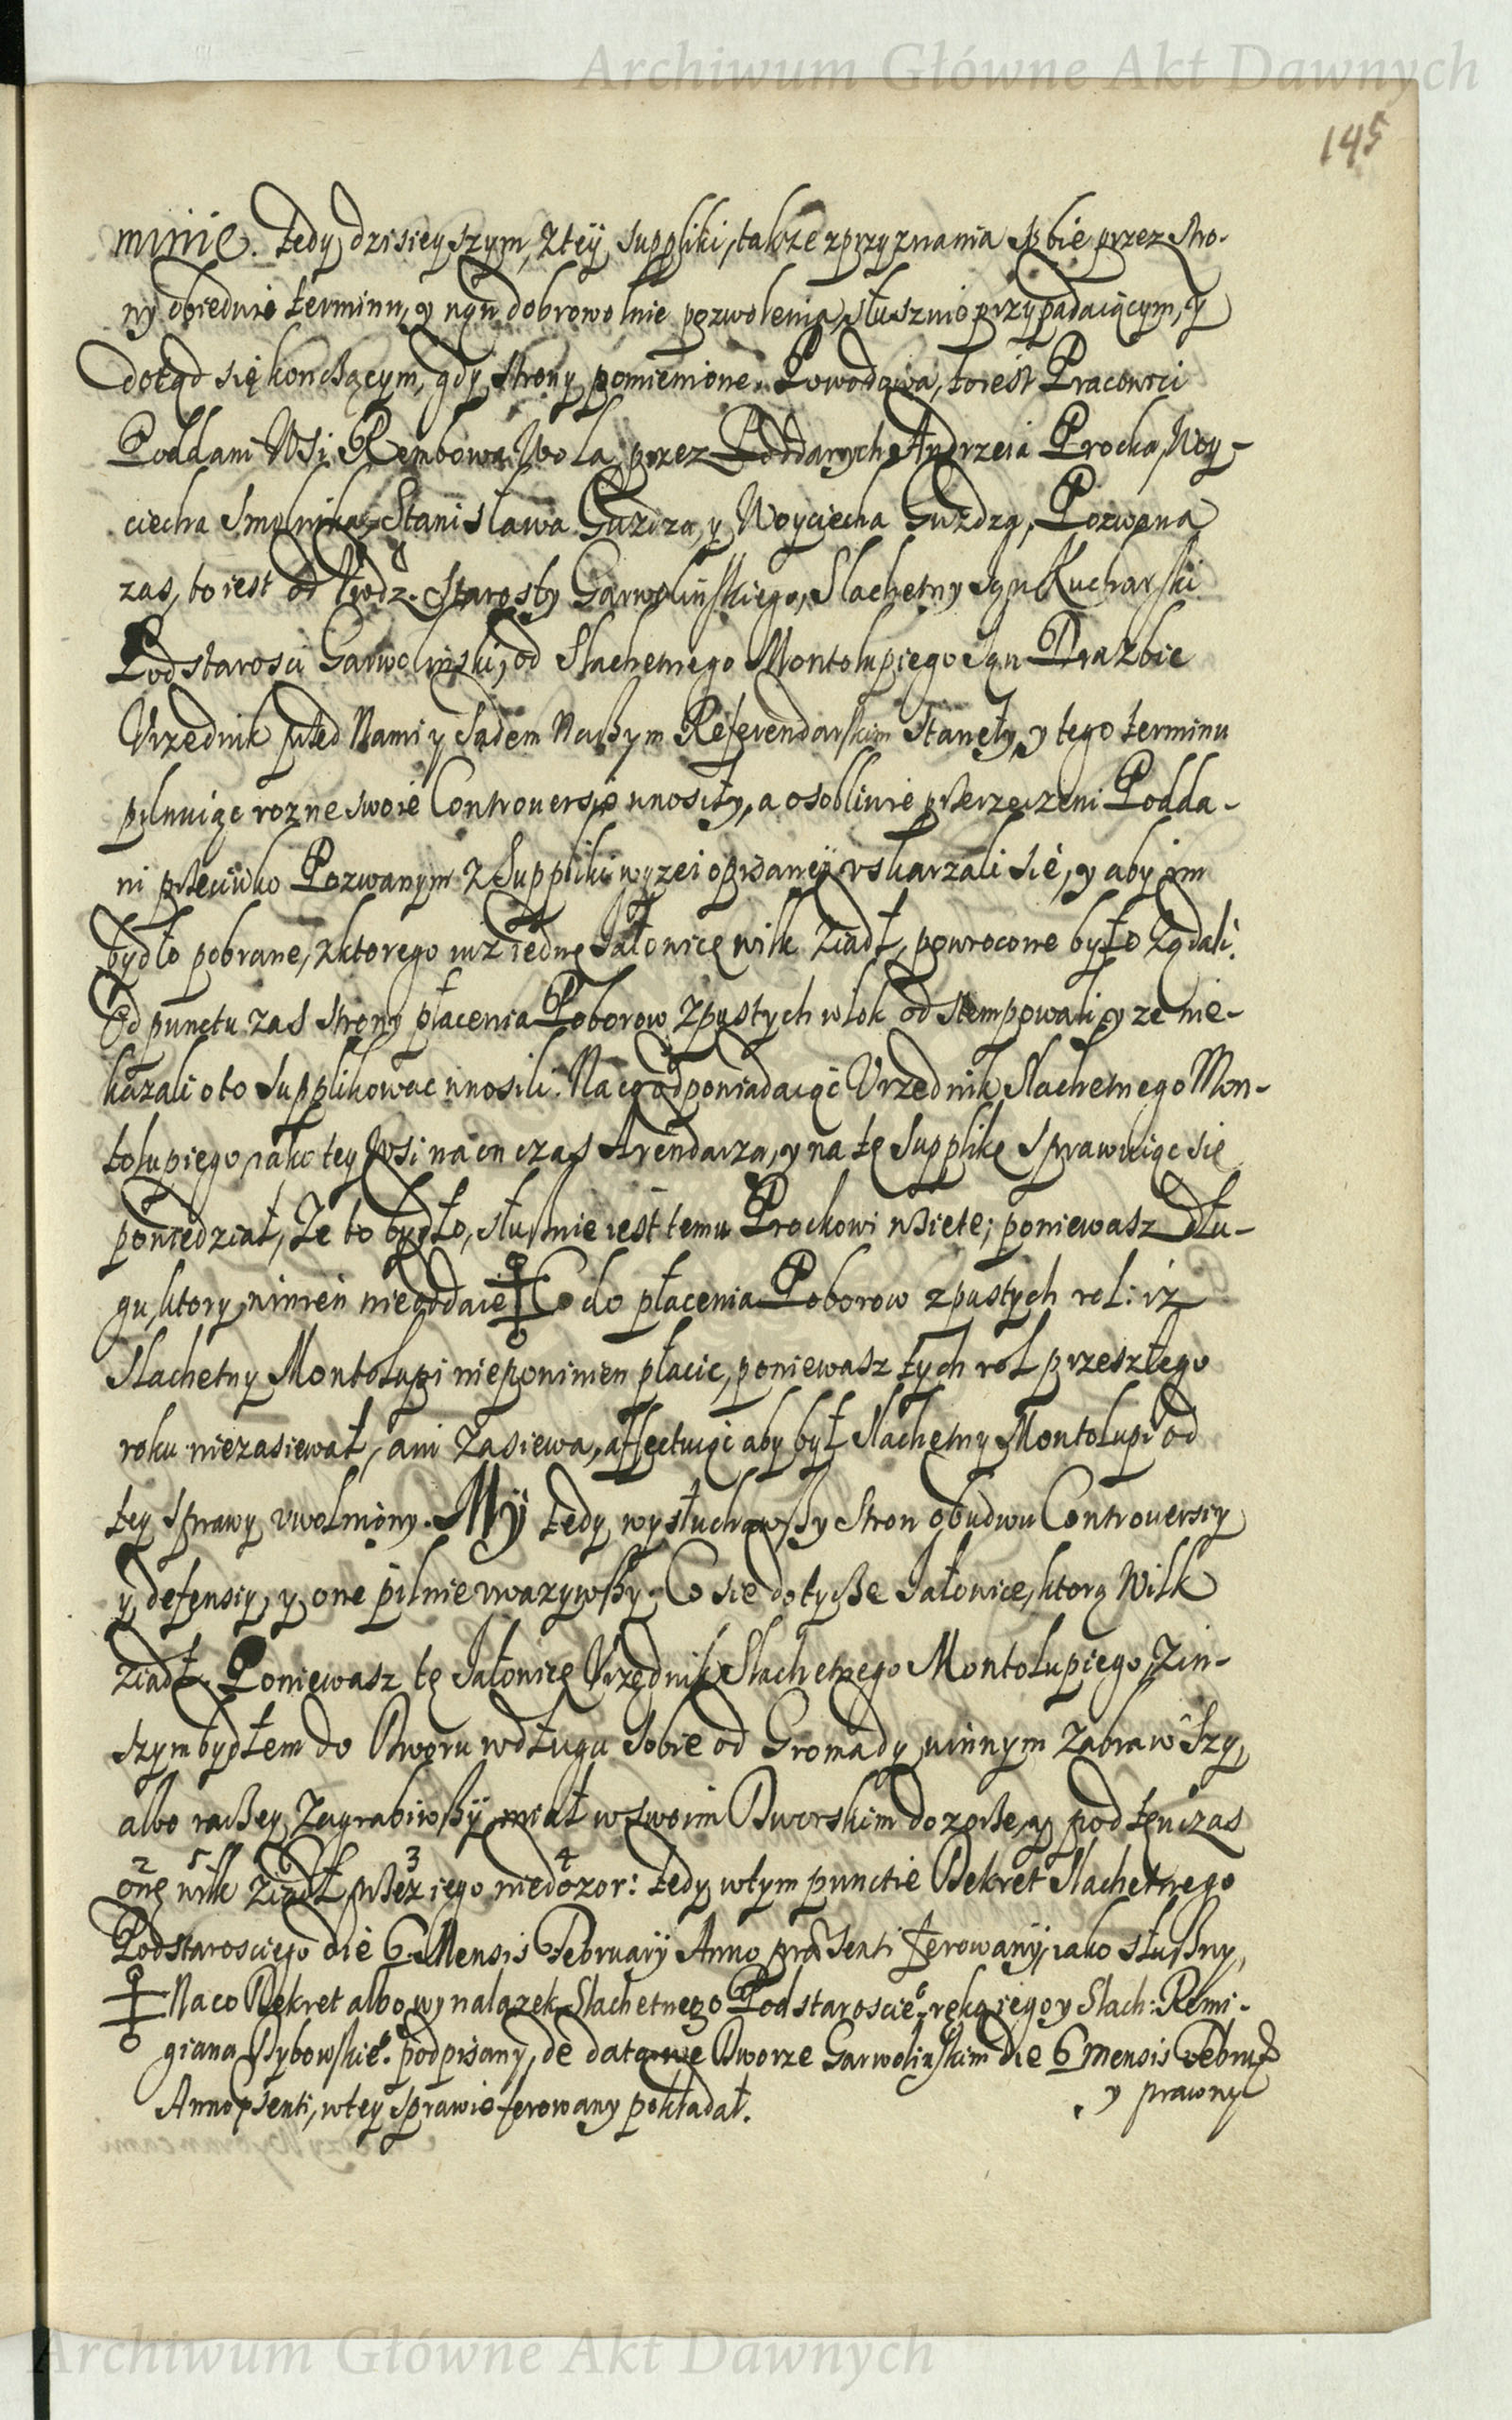 Archiwum Główne Akt Dawnych
145
minie. Tedy dzisieyszym, z tey suppliki, także z przyznania sobie przez stro-
ny obiedwie terminu, y nań dobrowolnie pozwolenia, słusznie przypadaiącym, y
dotąd się konczącym, gdy strony pomienione. Powodowa, to iest Pracowici
Poddani Wsi Rembowa Wola przez Poddanych Andrzeia Procka, Woy-
ciecha Smolnika, Stanisława Guzdza, y Woyciecha Guzdzą, Pozwana
zas, to iest od Urodz. Starosty Garwolinskiego, Slachetny Jan Kucharski
Podstarosci Garwolinski, od Slachetnego Montolupiego Jan Drazbic
Vrzednik przed Nami y Sądem Naszym Referendarskim stanęły, y tego terminu
pilnuiąc rozne swoie Controuersie wnosiły, a osobliwie przerzeczeni Podda-
ni przeciwko Pozwanym z Suppliki wyzei opisaney vskarzali się, y aby im
bydło pobrane, z ktorego iuz iednę Jałowicę wilk ziadł, powrocone było ządali.
Od punctu zas strony płacenia Poborow z pustych włok odstempowali, y ze nie-
kazali o to supplikowac wnosili. Na co odpowiadaiąc Vrzednik Slachetnego Mon-
tolupiego, iako tey Wsi na on czas Arendarza, y na tę Supplikę sprawuiąc się
powiedział, Ze to bydło, słusznie iest temu Prockowi wzięte; poniewasz dłu-
gu, ktory winien nieoddaie Co do płacenia Poborow z pustych rol: iz
Slachetny Montolupi niepowinien płacic, poniewasz tych rol przeszłego
roku niezasiewał, ani zasiewa, affectuiąc aby był Slachetny Montolupi od
tey sprawy vwolniony. My tedy wysłuchawszy Stron obudwu Controuersiy
y defensiy, y one pilnie vwazywszy. Co się dotycze Jałowice, ktorą Wilk
ziadł. Poniewasz tę Jałowicę Vrzędnik Slachetnego Montolupiego, z in-
szym bydłem do Dworu w długu sobie od Gromady winnym zabrawszy,
albo raczey zagrabiwszy, miał w swoim Dworskim dozorze, y pod ten czas
2 5 3 4
onę wilk ziadł przez iego niedozor: tedy w tym punctie Dekret Slachetnego
Podstarosciego die 6. Mensis February Anno præsenti ferowany, iako słuszny,
Na co Dekret albo wynalazek Slachetnego Podstarosciego, ręką iego y Slach: Remi-
giana Dybowskiego podpisany, de data we Dworze Garwolinskim die 6 mensis Februar
Anno psenti, w tey sprawie ferowany pokładał.
y prawny
Archiwum Główne Akt Dawnych